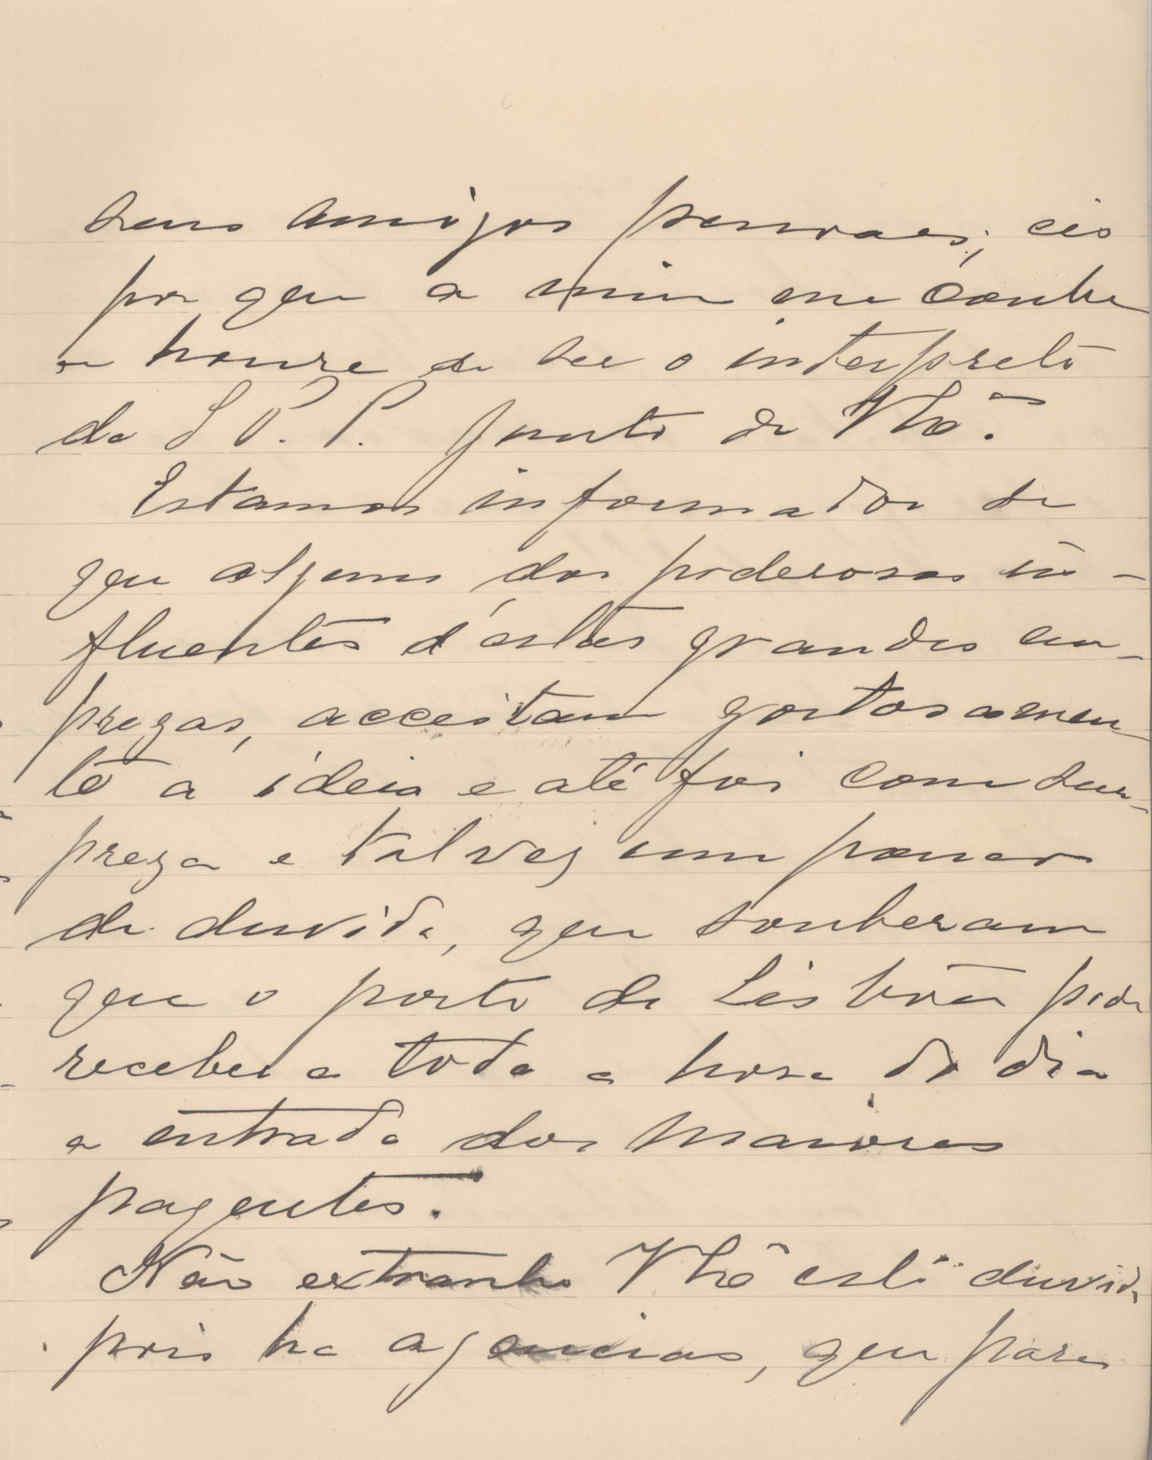 seus amigos pessoaes; eis
por que a mim me coube
a honra de ser o interprete
da S. P. P. junto de
Estamos informados de
que alguns dos poderosos in-
fluentes d'estas grandes em-
prezas, acceitam gostosamen-
te a ideia e até foi com sur-
preza e talvez um pouco
de duvida, que souberam
que o porto de Lisbôa pode
receber a toda a hora do dia
a entrada dos maiores
paquetes.
Não extranho esta duvida
pois ha agencias, que para